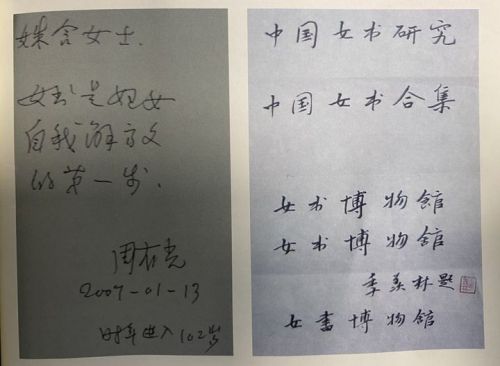 女士.
女书是妇女
自我解放
的第一步.
周有光
2007-01-13
时年进入102岁
中国女书研究
中国女书合集
女书博物館
女书博物館
季羡林题
女書博物館